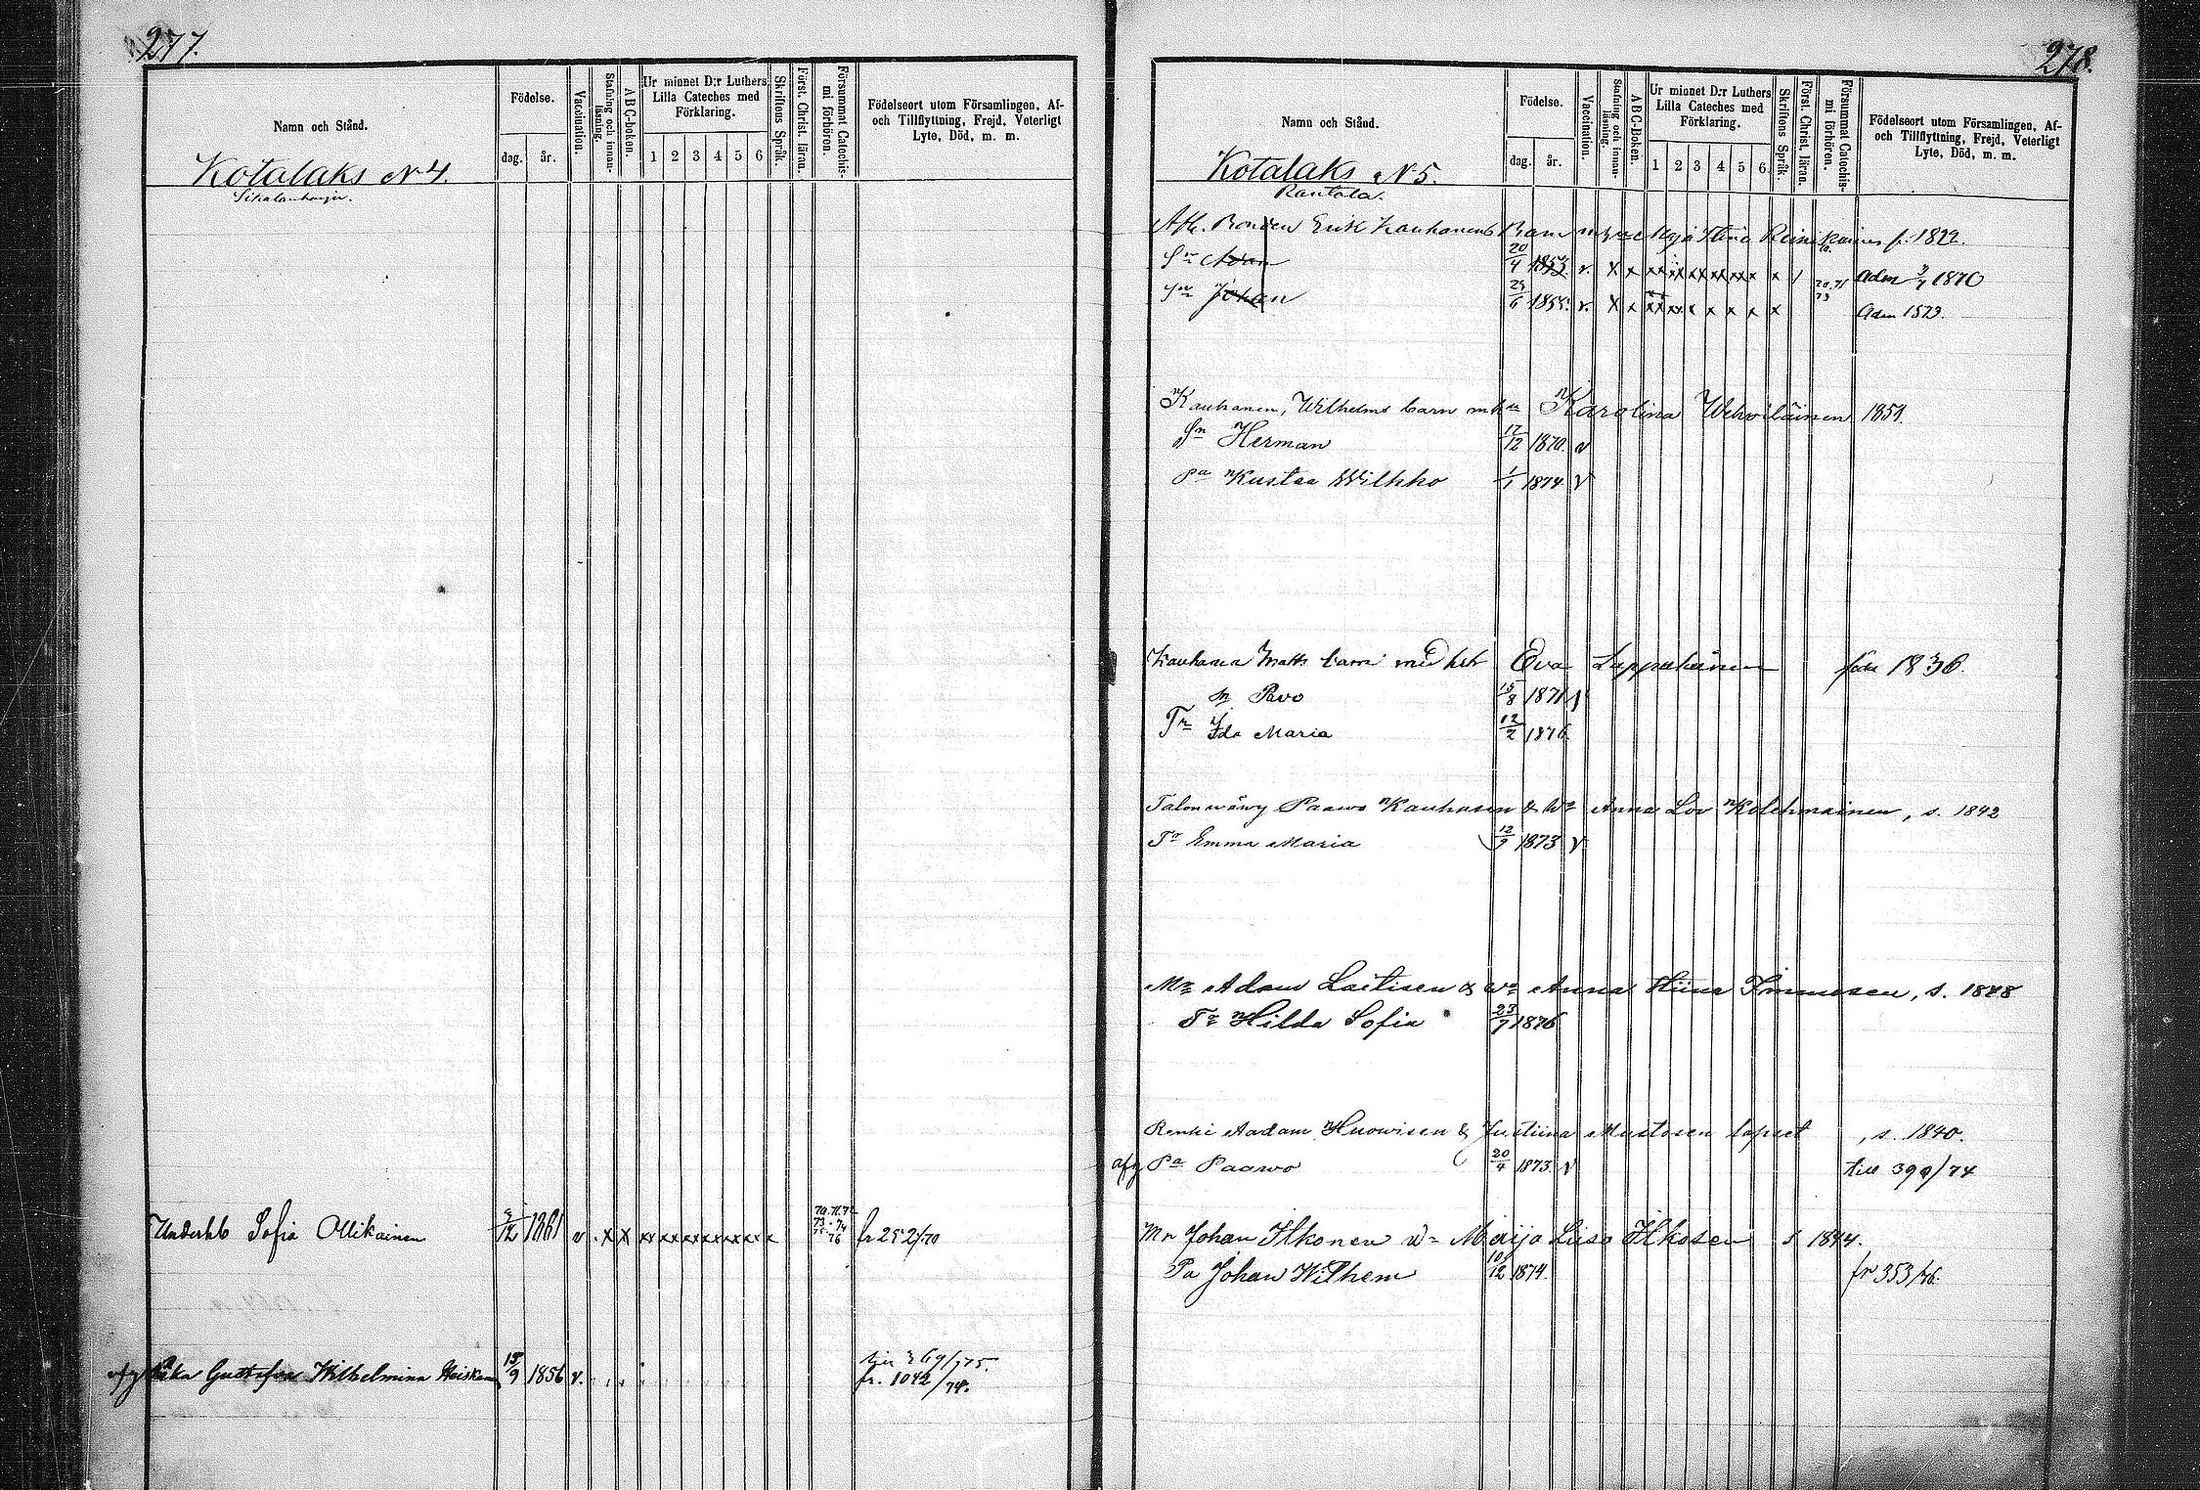 277.
Namn och Stånd.
Födelse.
dag.
år.
Vaccination.
Stafning och innan-läsning.
ABC-boken.
Ur minnet D:r Luthers
Lilla Cateches med
Förklaring.
1 2 3 4 5 6
Skriftens Språk.
Först. Christ. läran.
Försummat Catechis-mi förhören.
Födelseort utom Församlingen, Af-
och Tillflyttning, Frejd, Veterligt
Lyte, Död, m. m.
Kotalaks N 4.
Sofia Ollikainen 12 1861 v. x x xx xx xx xx xx xx x fr 252/70
afg Gustafva Wilhelmina Heiskan 15/9 1856 v. 369/75.
fr. 1042/74.
278.
Namn och Stånd.
Födelse.
dag.
år.
Vaccination.
Stafning och innan-läsning.
ABC-Boken.
Ur minnet D:r Luthers
Lilla Cateches med
Förklaring.
1 2 3 4 5 6
Skriftens Språk.
Först. Christ. läran.
Försummat Catechis-mi förhören.
Födelseort utom Församlingen, Af-
och Tillflyttning, Frejd, Veterligt
Lyte, Död, m. m.
Kotalaks N 5.
Rantala.
Afl. Bonden Erik Kauhanens Barn f. 1822.
Sn 20/4 v. x x xx xx xx xx xx x 1 Adm 1870
Sn Johan 6 v. x x xx xx x x x x x Adm 1873.
Kauhanen, Wilhelms barn m h Karolina Wehviläinen 1851.
Sn Herman 17/12 1870. v
Pa Kustaa Wilkko 1/1 1874 v
Kauhanen Matts barn med hst Eva Lappalainen 1836.
Sn Pavo 15/8 1871 v
Tr Ida Maria 12/2 1876.
Talonwäwy Paawo Kauhasen & Wo Anna Lov Kolehmainen, s. 1842
Tr Emma Maria 12/7 1873 v
Mr Adam Laitisen & Wo Anna Stiina Immosen, s. 1848
Tr Hilda Sofia 23/7 1876
Renki Aadam Huowisen & Justiina Mustosen lapset, s. 1840.
afg Pa Paawo 20/4 1873. v till 390/74
Mr Johan Ilkonen Maija Liisa Ilkosen s 1844.
Pa Johan Wilhem 10/12 1874. fr 353/76.